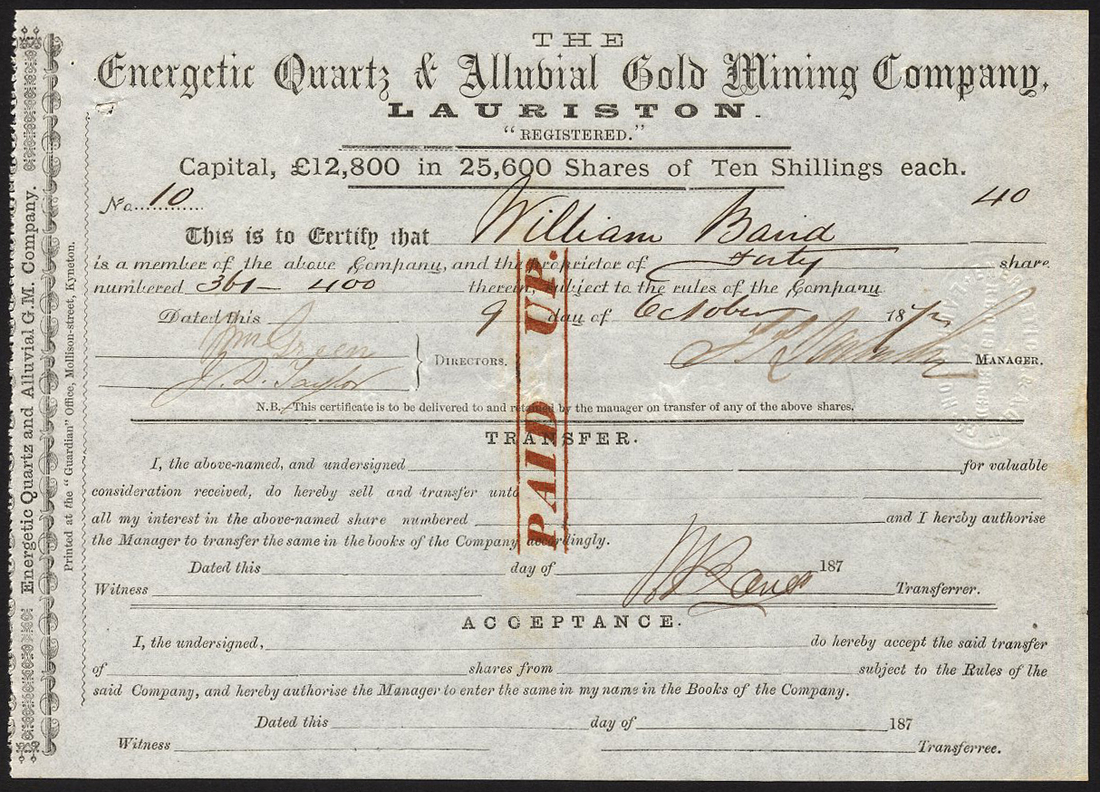 THE
Energetic Quartz & Alluvial Gold Mining Company,
LAURISTON.
"REGISTERED."
Capital, £12,800 in 25,600 Shares of Ten Shillings each.
No. 10 40
This is to Certify that William Baird
is a member of the above Company, and the proprietor of Forty share
numbered 361 — 400 therein, subject to the rules of the Company
Dated this 9 day of October 187
Wm Green
J. D. Taylor
DIRECTORS.
MANAGER.
N.B. This certificate is to be delivered to and retained by the manager on transfer of any of the above shares.
PAID UP.
TRANSFER.
I, the above-named, and undersigned for valuable
consideration received, do hereby sell and transfer unto
all my interest in the above-named share numbered and I hereby authorise
the Manager to transfer the same in the books of the Company accordingly.
Dated this day of 187
Witness Transferrer.
ACCEPTANCE.
I, the undersigned, do hereby accept the said transfer
of shares from subject to the Rules of the
said Company, and hereby authorise the Manager to enter the same in my name in the Books of the Company.
Dated this day of 187
Witness Transferree.
Energetic Quartz and Alluvial G.M. Company.
Printed at the "Guardian" Office, Mollison-street, Kyneton.